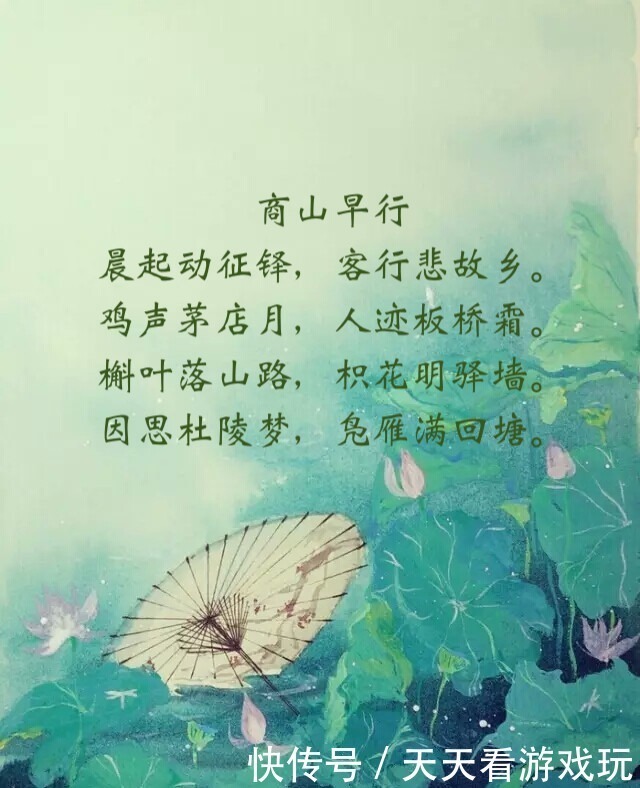 商山早行
晨起动征铎，客行悲故乡。
鸡声茅店月，人迹板桥霜。
槲叶落山路，枳花明驿墙。
因思杜陵梦，凫雁满回塘。
快传号 / 天天看游戏玩